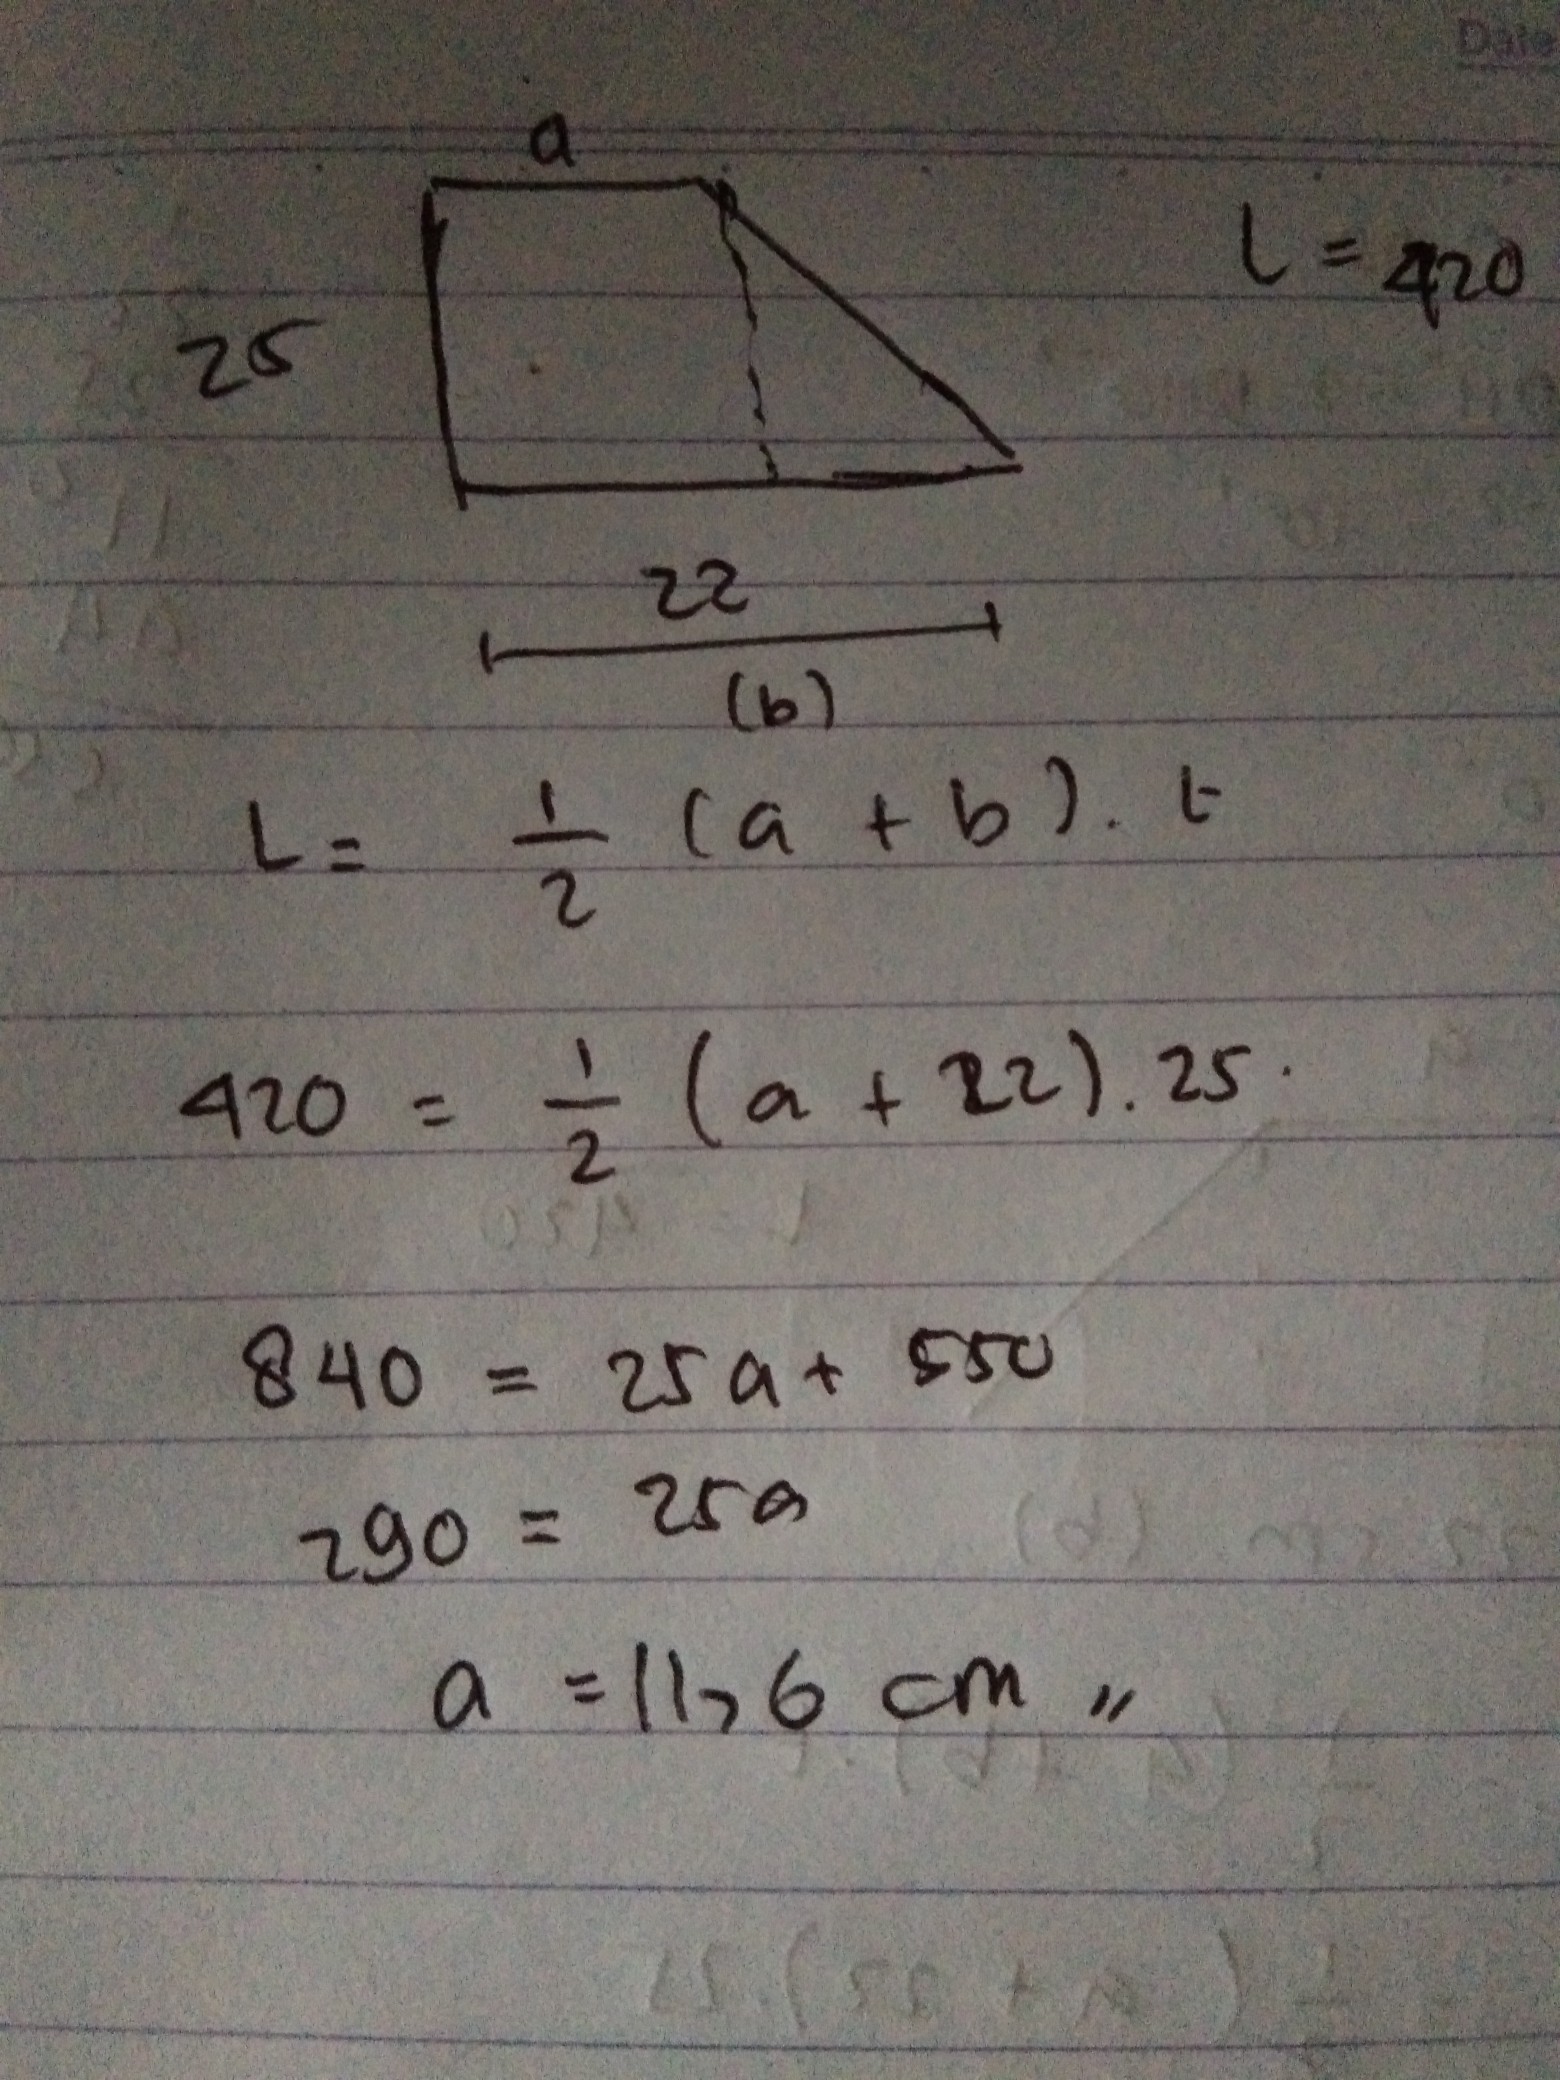 Date
a
L = 420
25
22
(b)
L = 1/2 (a + b) . t
420 = 1/2 (a + 22) . 25 .
840 = 25a + 550
290 = 25a
a = 11,6 cm "